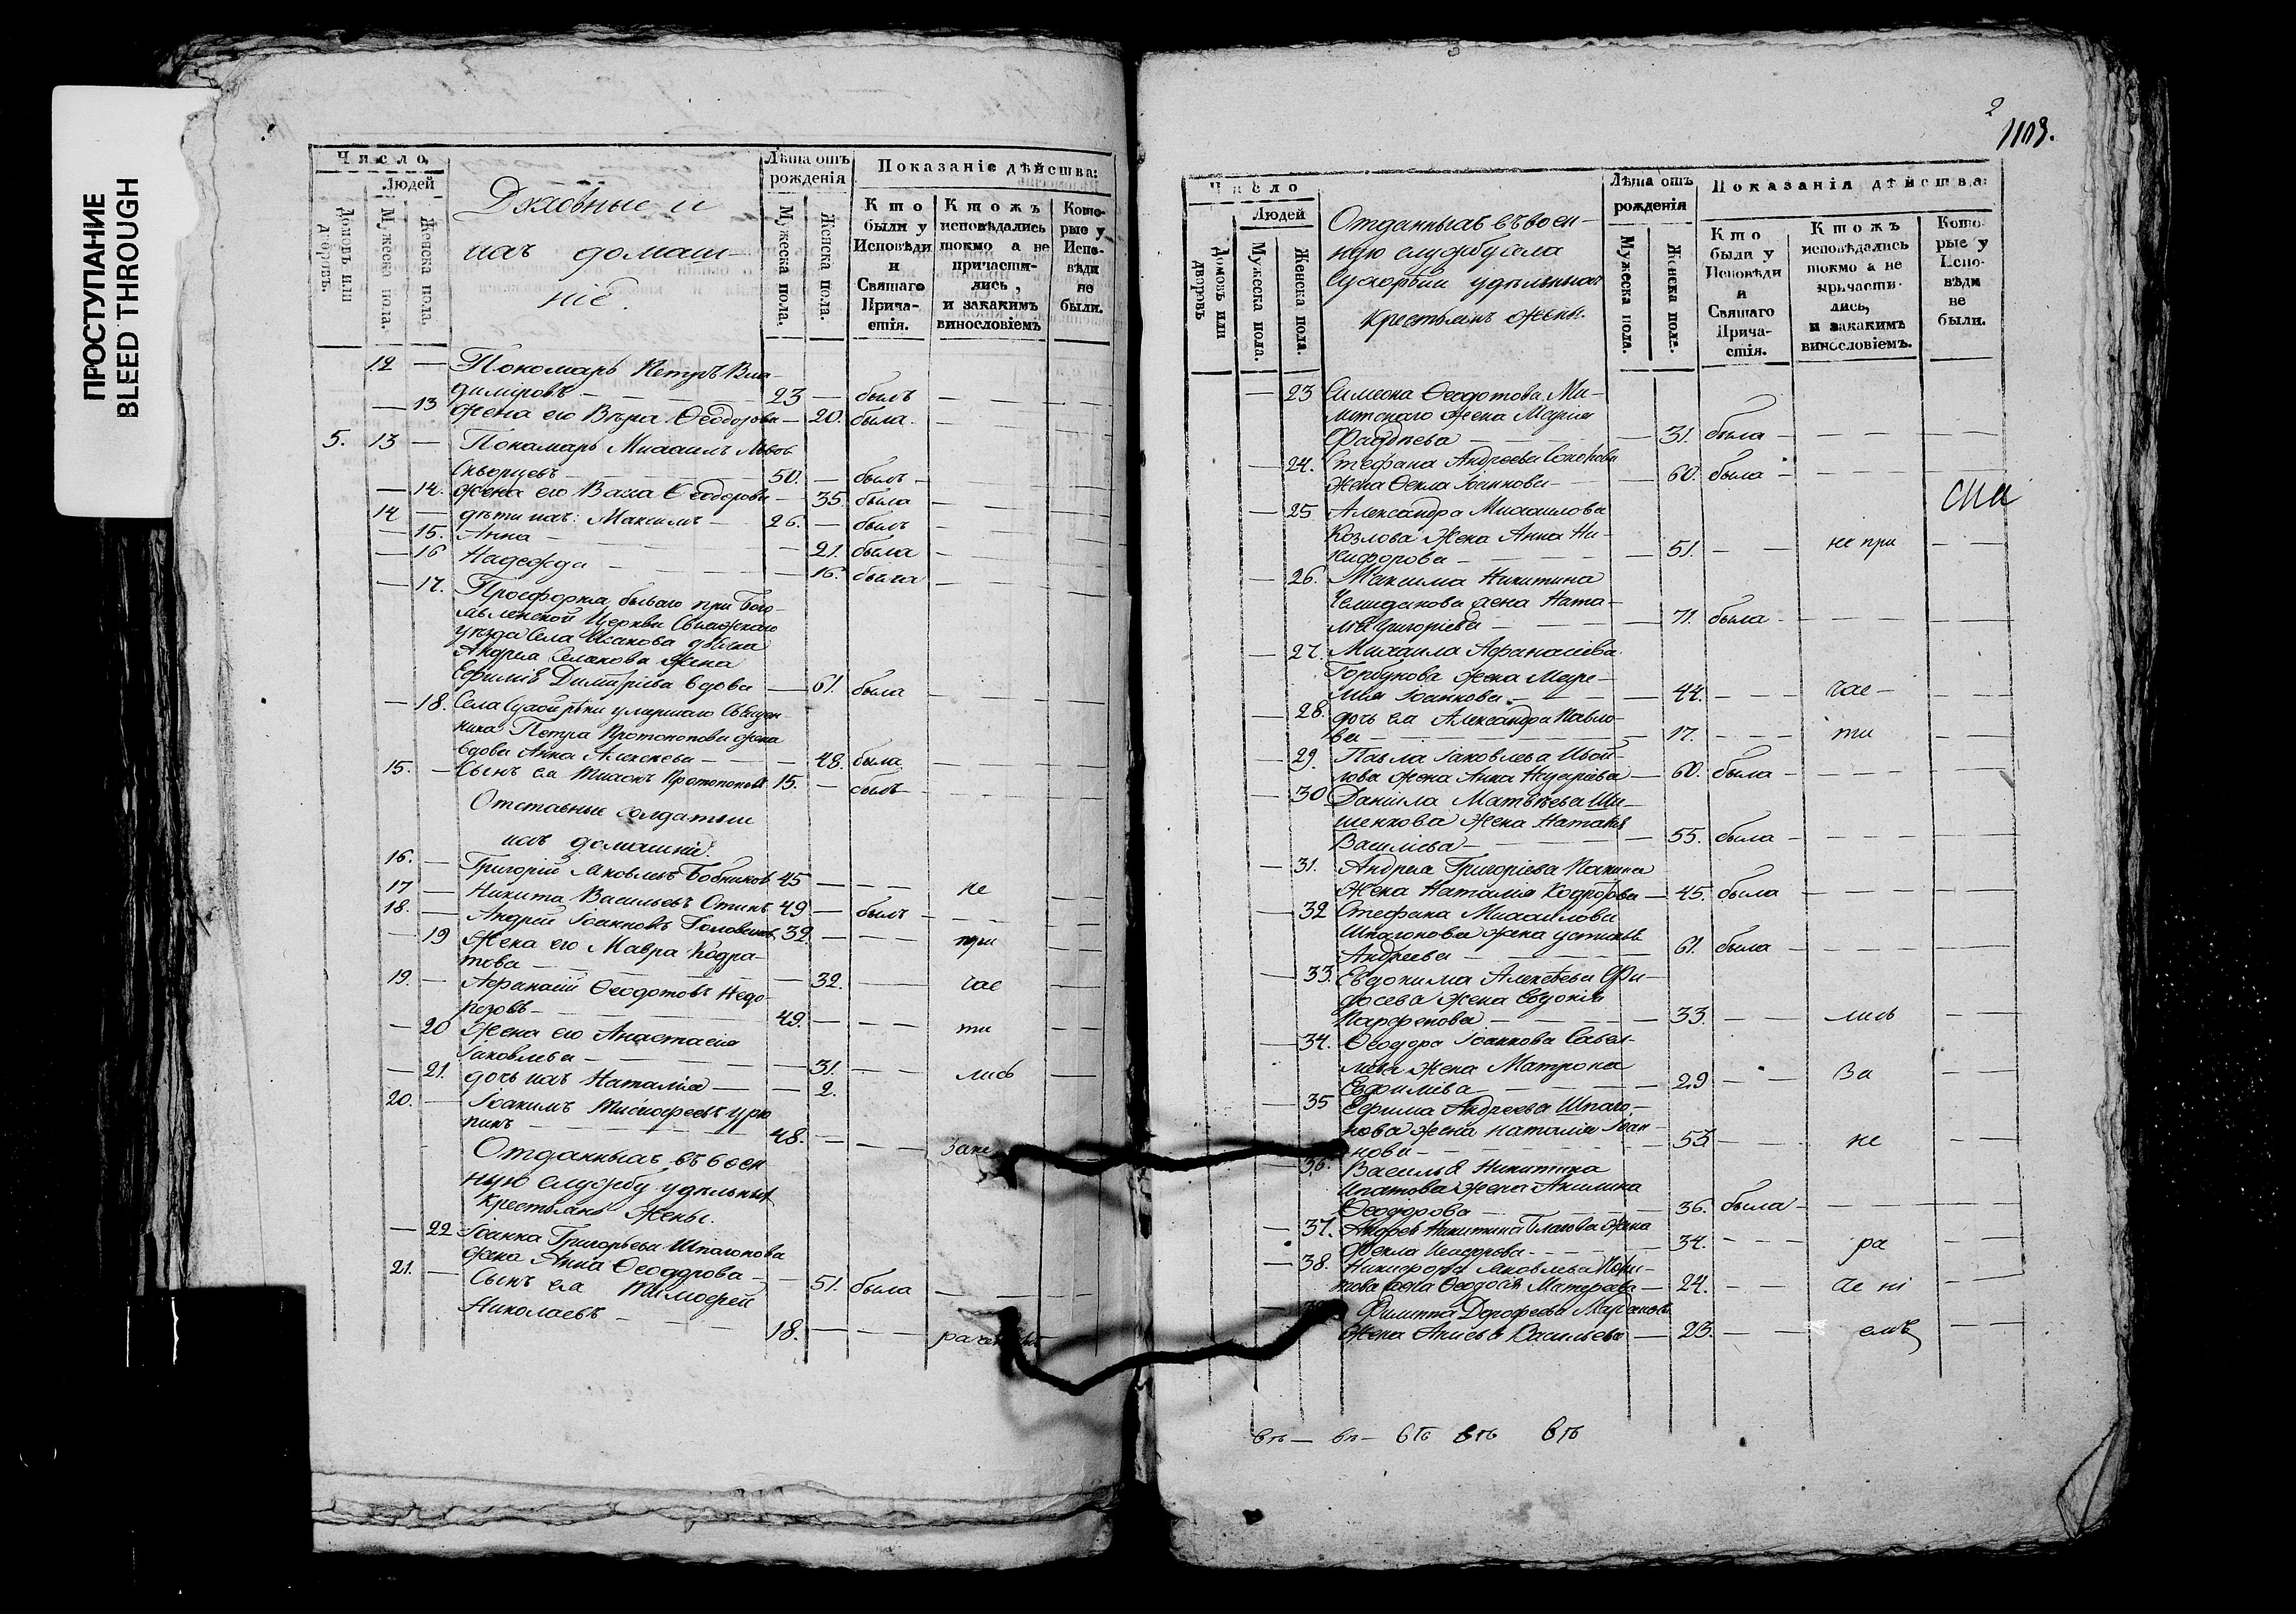 ПРОСТУПАНИЕ
BLEED THROUGH
Число
Людей
Домовъ или дворовъ.
Мужеска пола.
Женска пола.
Духовные и
ихъ домаш-
ніе.
Лѣта отъ рожденія
Мужеска пола.
Женска пола.
Показаніе дѣйства:
Кто были у Исповѣди и Святаго Прича-стія.
Ктожъ исповѣдались токмо а не причасти-лись, и закакимъ винословіемъ
Кото-рые у Испо-вѣди не были.
12 — Пономарь Петръ Вла-
димировъ — 23 — былъ
— 13 жена его Вѣра Ѳеодорова — 20. была.
5. 13 — Пономарь Михаилъ Львовъ
Скворцевъ 50. — былъ
— 14. жена его Васса Ѳеодорова — 35 была
14 — дѣти ихъ: Максимъ — 26. — былъ
— 15. Анна — 21. была
— 16 Надежда — 16. была
— 17. Просфорня, бываго при Бого-
явленской Церкви Свіяжскаго
уѣзда Села Исакова дьячка
Андрея жена
Ефимія Димитріева вдова — 61. была
— 18. Села Сухой рѣки умершаго Священ
ника Петра Протопопова жена
вдова Анна Алексѣева — 48. была
15. — Сынъ ея Тихонъ Протопоповъ 15. — былъ
Отставные солдаты и
ихъ домашніе.
16. — Григорій Яковлевъ Бобниковъ 45 — не
17 — Никита Васильевъ 49 — былъ
18. — Андрей Іоанновъ Головинъ 32 —
— 19 Жена его Мавра Кодра-
това — 32. при
19. — Афанасій Ѳеодотовъ Недо-
резовъ 49. — чае
— 20 Жена его Анастасія
Іаковлева — 31. ти
— 21. дочь ихъ Наталія — 2. лись
20. — Іоакимъ Тимоѳеевъ
пинъ — 48. —
Отданныхъ въ воен
ную службу удѣльныхъ
Крестьянъ Жены.
— 22 Іоанна Григорьева Шпагонова
жена Анна Ѳеодорова — 51. была
21. — Сынъ ея Тимоѳей
Николаевъ — 18. —
2
1109.
Число
Людей
Домовъ или дворовъ
Мужеска пола.
Женска пола.
Отданныхъ въ воен-
ную службу села
Сухорѣки удѣльныхъ
крестьянъ жены.
Лѣта отъ рожденія
Мужеска пола.
Женска пола.
Показанія дѣйства:
Кто были у Исповѣди и Святаго Прича-стія.
Ктожъ исповѣдались токмо а не причасти-лись, и закакимъ винословіемъ.
Кото-рые у Испо-вѣди не были.
— 23 Симеона Ѳеодотова Ми-
жена Марія
Фаддѣева — 31. была
— 24. Стефана Андреева
жена Ѳекла Іоаннова — 60. была
— 25 Александра Михаилова
Козлова жена Анна Ни-
кифорова — 51. — не при
— 26. Максима Никитина
жена Ната-
лія Григоріева — 71. была
— 27. Михаила Афанасіева
Горбунова жена Маре-
мія Іоаннова — 44. — чае
— 28. дочь ея Александра Павло-
ва — 17. — ти
— 29. Павла Іаковлева
жена Анна Назаріева — 60. была
— 30 Даніила Матвѣева Ши-
шенкова жена Наталія
Василіева — 55. была
— 31. Андрея Григоріева Панина
Жена Наталія Кодротова — 45. была
— 32 Стефана Михаилова
Шпагонова жена Устинья
Андреева — 61. была
— 33. Евдокима Алексѣева Ѳи-
досева жена Евдокія
Парфенова — 33. — лись
— 34. Ѳеодора Іоаннова Савел-
лева жена Матрона
Евфиміева — 29 — За
— 35 Ефима Андреева Шпаго-
нова жена наталія Іоан-
нова — 53 — не
— 36. Василья Никитина
Ипатова жена Акилина
Ѳеодорова — 36. была
— 37. Андрея Никитина Глазова жена
Фекла Исидорова — 34. — ра
— 38. Никифора Яковлева
жена Ѳеодосія — 24. — че ні
Филиппа Дорофеева
жена Анисья Васильева — 23. — емъ